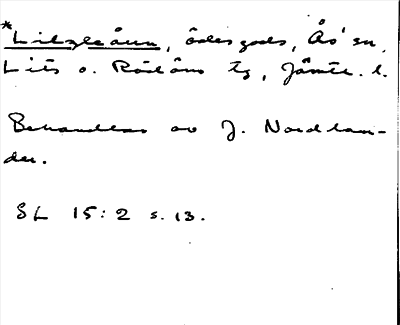 *Litzleåun, ödesgods, Ås' sn,
Lits o. Rödöns tg, Jämtl. l.
Behandlas av J. Nordlan-
der.
SL 15:2 s. 13.